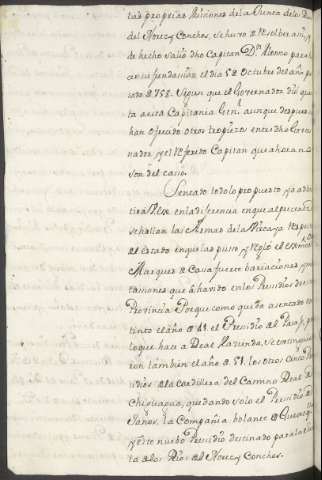 tas proprias Misiones de la Junta de los Rios
del Norte y Conchos, se hubo de Resolver así, y
de hecho salió dho Capitan Dn. Alonso para
la nueva fundacion el dia 5 de Octubre del año
pasado de 758. Segun que el Governador dió
ta a esta Capitania Gen.l aunque despues
han ofrecido otros tropiezos entre dho Gover
nador, y el Referido Capitan que ahora no
son del caso.
Sentado todo lo propuesto, ya ad
tirá V. Exa. en la diferencia en que al presente
se hallan las Armas de la Vizcaya Respecto
al estado en que las puso, y Regló el
Marques de Casa fuerte
taciones que á havido en los Presidios de
Provincia. Porque como queda asentado
tinto el año de 41. el Presidio del Pasaje
lo que hace a Real Hazienda, se
ron tambien el año de 51. los otros cinco Pre
sidios de la cordillera del Camino Real de
Chiguagua, quedando solo el Presidio de
Janos, la Compañia bolante de
y este nuebo Presidio destinado para la
ta de los Rios del Norte y Conchos.